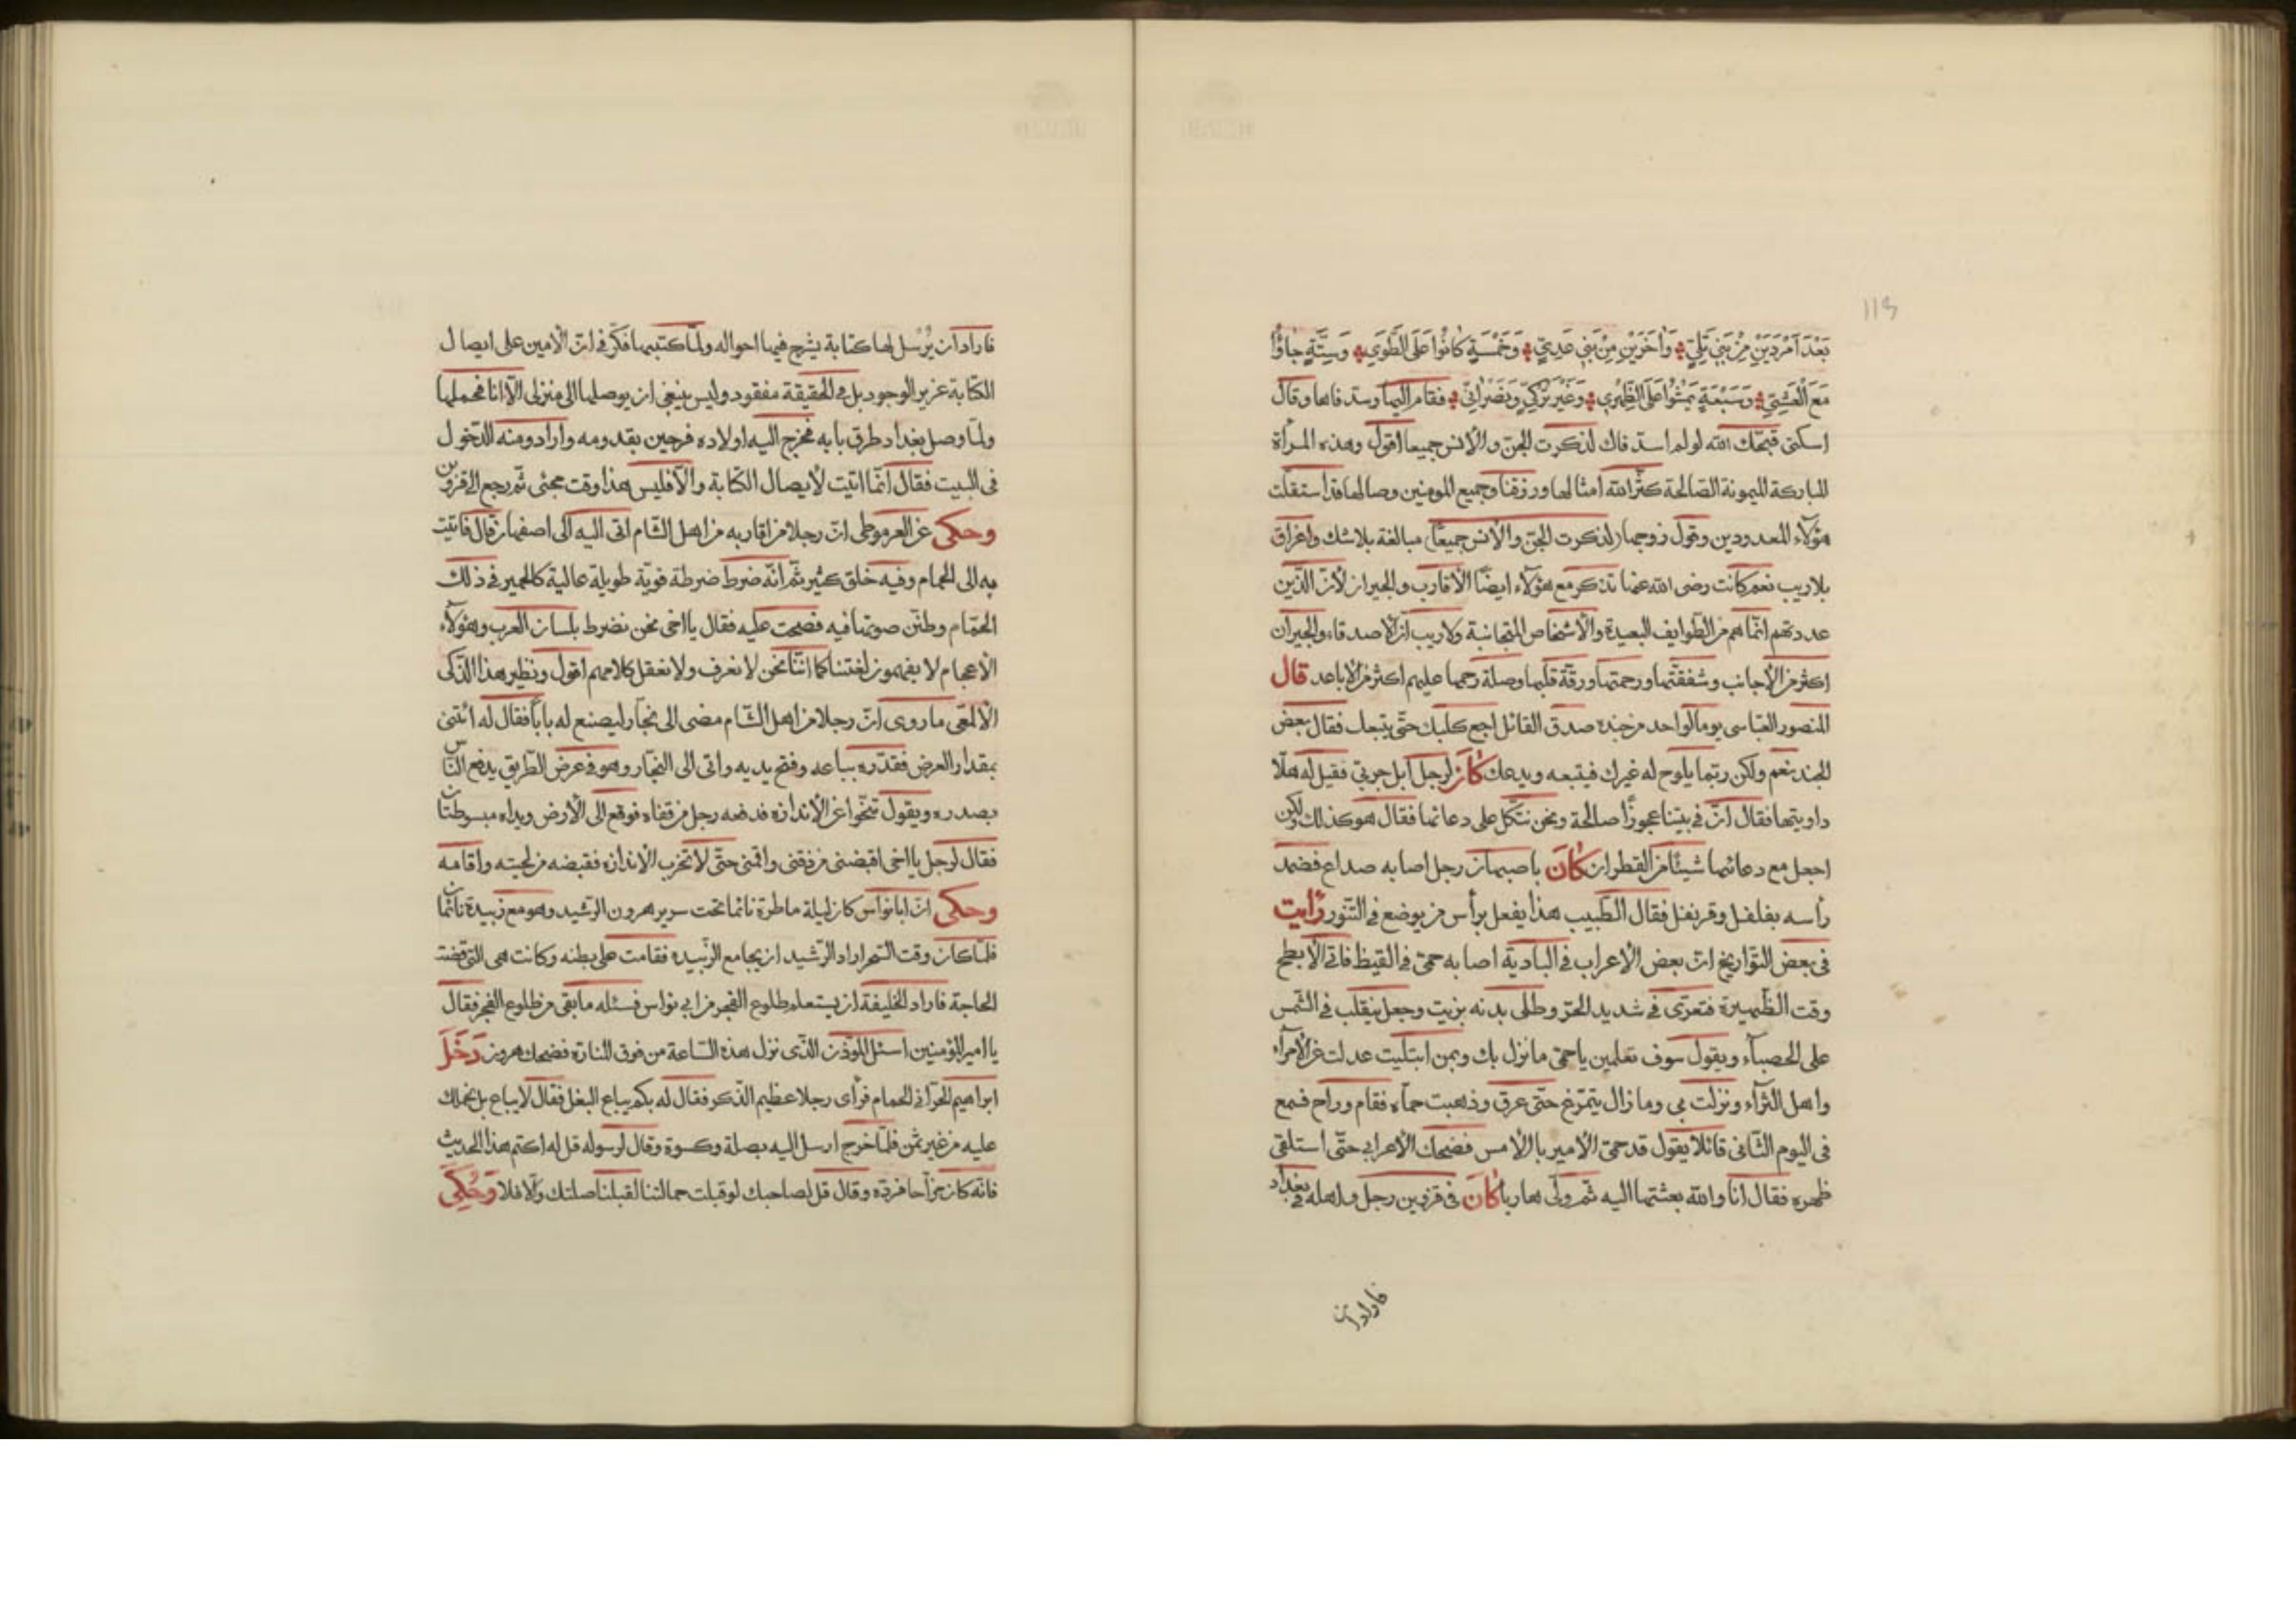 118
بَعْدَ اَمْرَدَيْنِ مِنْ بَنِي بَلِيّ وَاٰخَرَيْنِ مِنْ بَنِي عَدِيّ وَخَمْسَةٍ كانُوا عَلَى الطَّوِيّ وَسِتَّةٍ جاؤُا
مَعَ الْعَشِيّ وَسَبْعَةٍ بَيَّتُوا عَلَى وَغَيْرِ تُرْكِيّ وَنَصْرانِيّ فقام اليها وسدّ فاها وقال
اسكتى قبحك الله لو لم اسدّ فاك لذكرت الجنّ والانس جميعا اقول وهذه المرأة
المباركة الميمونة الصالحة كثّر الله امثالها ورزقنا وجميع المومنين وصالها قد استقلّت
هؤلاء المعدودين وقول زوجها (لذكرت الجنّ والانس جميعًا) مبالغة بلاشك واغراق
بلاريب نعم كانت رضى الله عنها تذكر مع هؤلاء ايضًا الاقارب والجيران لانّ الذين
عددتهم انما هم من الطوايف البعيدة والاشخاص المتجانبة ولاريب انّ الاصدقاء والجيران
اكثر من الاجانب وشفقتها ورحمتها ورقة قلبها وصلة رحمها عليهم اكثر من الاباعد قال
المنصور العباسى يوما لواحد من جنده صدق القائل اجع كلبك حتّى يتبعك فقال بعض
الجند نعم ولكن ربّما يلوح له غيرك فيتبعه ويدعك كانَ لرجل ابل جربى فقيل له هلّا
داويتها فقال انّ فى بيتنا عجوزًا صالحة ونحن نتّكل على دعائها فقال هو كذلك ولكن
اجعل مع دعائها شيئًا من القطران كانَ باصبهان رجل اصابه صداع فضمد
رأسه بفلفل وقرنفل فقال الطبيب هذا يفعل برأس من يوضع فى التنور رأيت
فى بعض التواريخ انّ بعض الاعراب فى البادية اصابه حمّى فى القيظ فاتى الابطح
وقت الظهيرة فتعرّى فى شديد الحرّ وطلى بدنه بزيت وجعل ينقلب فى الشمس
على الحصبآء ويقول سوف تعلمين ياحمّى مانزل بك وبمن ابتليت عدلت عن الامرآء
واهل الثرآء ونزلت بى ومازال يتمرّغ حتّى عرق وذهبت حمّاه فقام وراح فسمع
فى اليوم الثانى قائلا يقول قد حمّ الامير بالامس فضحك الاعرابى حتّى استلقى
ظهره فقال انا والله بعثتها اليه ثمّ ولّى هاربا كانَ فى قزوين رجل واهله فى بغداد
فاراد ان
فاراد ان يُرْسل لها كتابة يشرح فيها احواله ولمّا كتبها فكّر فى انّ الامين على ايصال
الكتابة عزيز الوجود بل فى الحقيقة مفقود وليس ينبغى ان يوصلها الى منزلى الّا انا فحملها
ولمّا وصل بغداد طرق بابه فخرج اليه اولاده فرحين بقدومه وارادو منه الدخول
فى البيت فقال انّما اتيت لايصال الكتابة والّا فليس هذا وقت مجئى ثمّ رجع الى قزوين
وحكى عن العرموطى انّ رجلا من اقاربه من اهل الشام اتى اليه الى اصفهان قال فاتيت
به الى الحمام وفيه خلق كثير ثمّ انّه ضرط ضرطة قويّة طويلة عالية كالحمير فى ذلك
الحمّام وطنّن صوتها فيه فصحت عليه فقال يااخى نحن نضرط بلسان العرب وهؤلآء
الاعجام لا يفهمون لغتنا كما انّنا نحن لا نعرف ولا نعقل كلامهم اقول ونظير هذا الذكى
الالمعى ماروى انّ رجلا من اهل الشام مضى الى نجّار ليصنع له بابًا فقال له ائتنى
بمقدار العرض فقدّره بباعه وفتح يديه واتى الى النجّار وهو فى عرض الطريق يدفع الناس
بصدره ويقول تنحّوا عن الاندازه فدفعه رجل من قفاه فوقع الى الارض ويداه مبسوطتان
فقال لرجل يااخى اقبضنى من ذقنى واقمنى حتّى لاتخرب الاندازه فقبضه من لحيته واقامه
وحكى انّ ابا نواس كان ليلة ماطرة نائما تحت سرير هرون الرشيد وهو مع زبيدة نائمان
فلمّا كان وقت السحر اراد الرّشيد ان يجامع الزّبيده فقامت على بطنه وكانت هى التى قضت
الحاجة فاراد الخليفة ان يستعلم طلوع الفجر من ابى نواس فسئله مابقى من طلوع الفجر فقال
يا امير المؤمنين اسئل المؤذن الذى نزل هذه الساعة من فوق المنارة فضحك هرون دَخَلَ
ابراهيم الحرّانى الحمام فرأى رجلا عظيم الذكر فقال له بكم يباع البغل فقال لا يباع بل نحملك
عليه من غير ثمن فلمّا خرج ارسل اليه بصلة وكسوة وقال لرسوله قل له اكتم هذا الحديث
فانّه كان مزاحا فردّه وقال قل لصاحبك لو قبلت حملاننا لقبلنا صلتك والّا فلا وَحُكِىَ